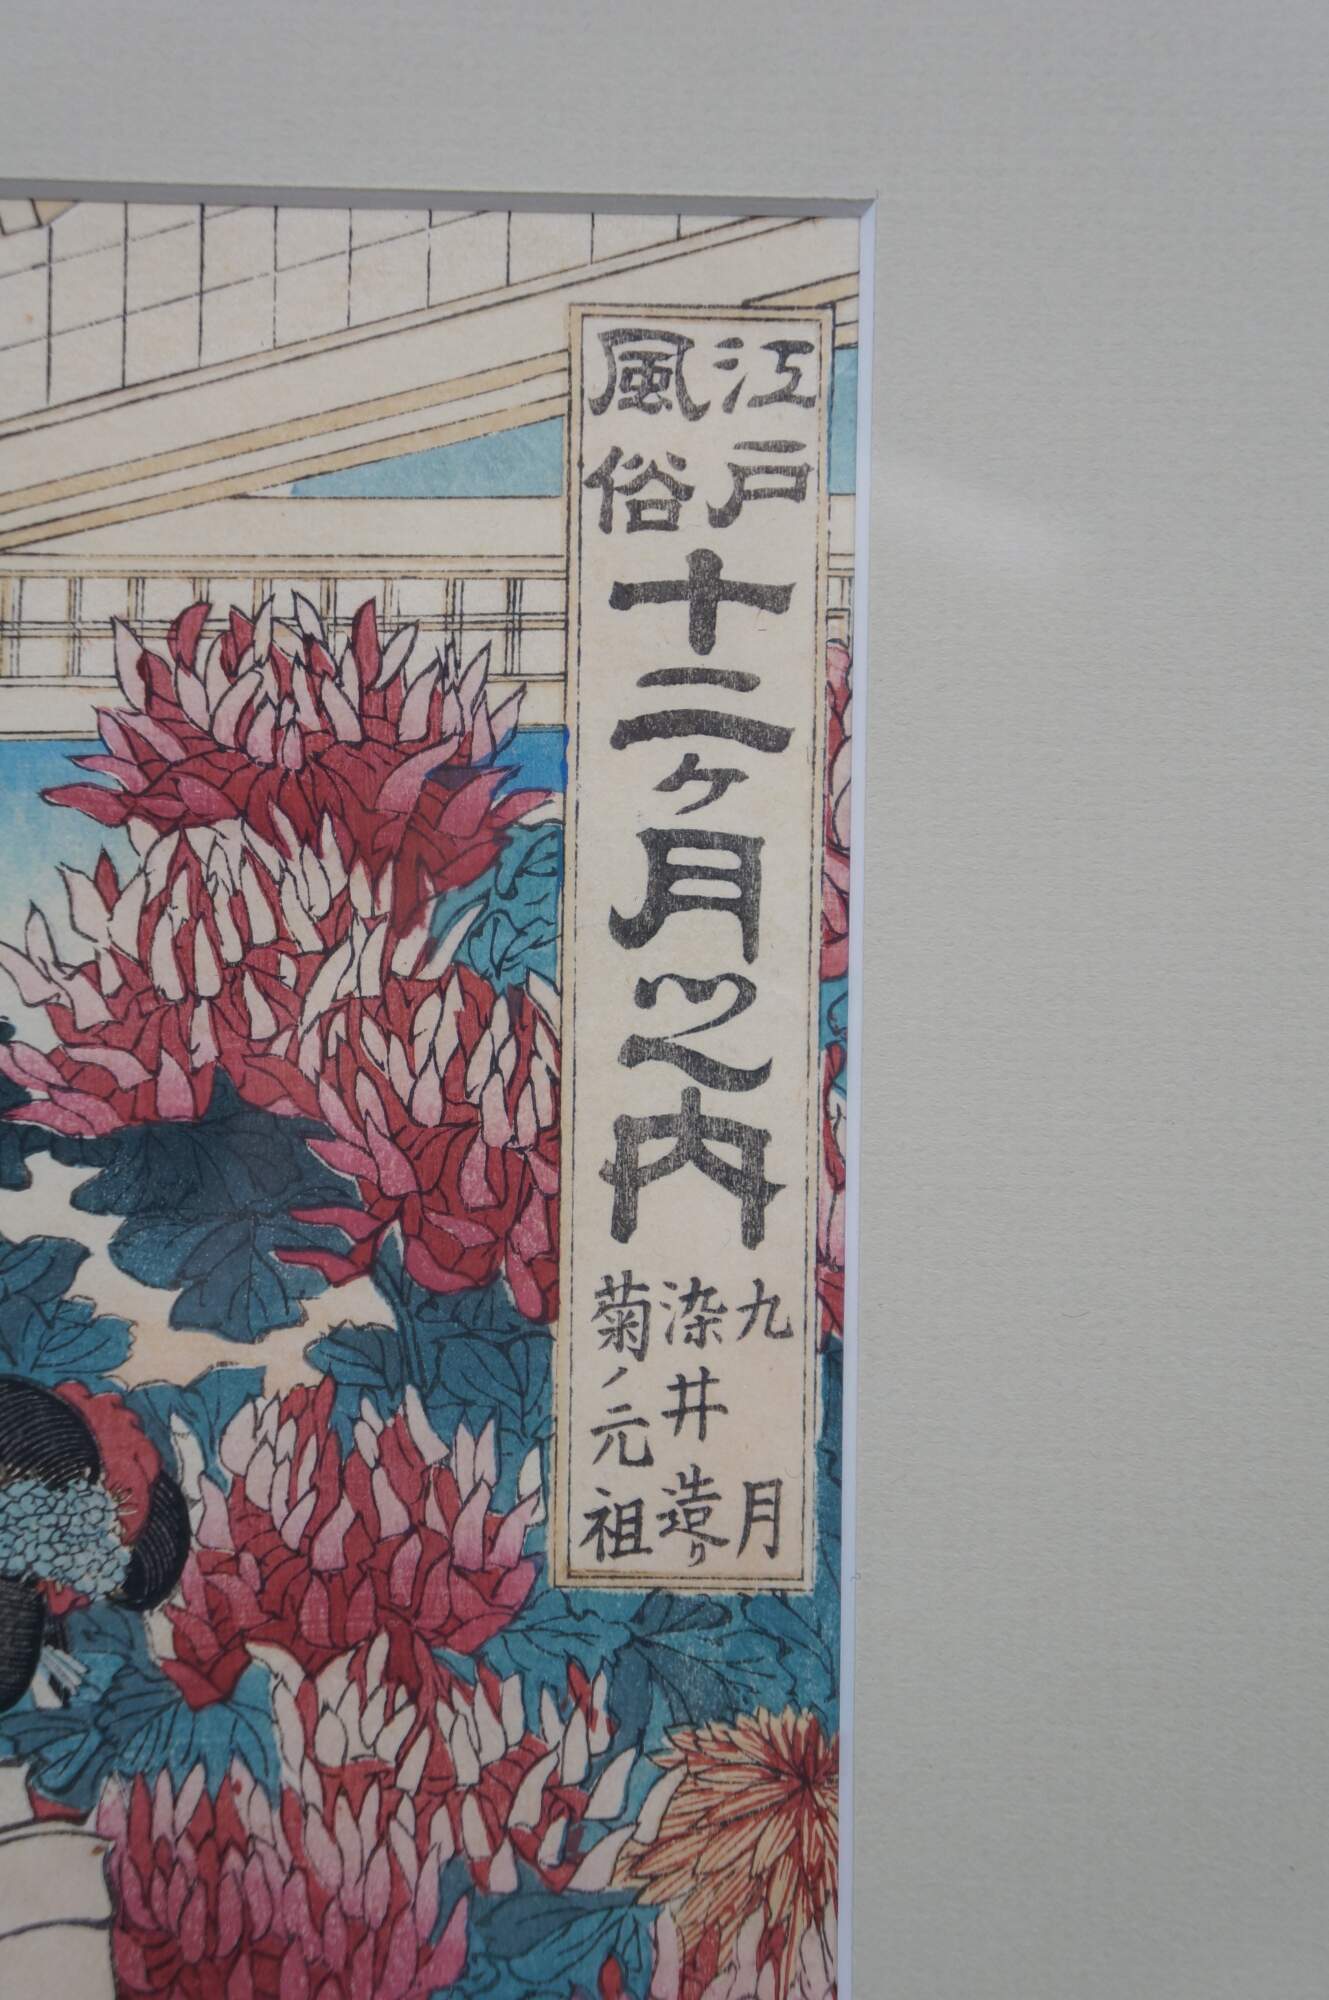 江戸
風俗
十二ヶ月之内
九月
染井造り
菊ノ元祖